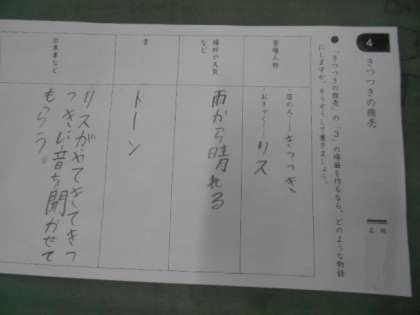 4
きつつきの商売
● 「きつつきの商売」の「3」の場面を作るなら、どのような物語
にしますか。そうぞうして書きましょう。
登場人物
店の人――きつつき
おきゃく――リス
場所や天気
など
雨から晴れる
音
トーン
出来事など
リスがやてきてきつ
つきに音を聞かせて
もらう。